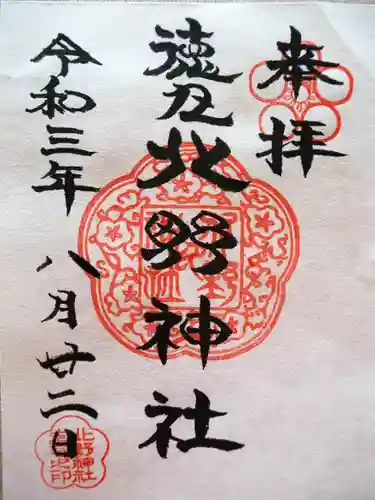 奉拝
徳丸北野神社
令和三年八月廿二日
北野神社